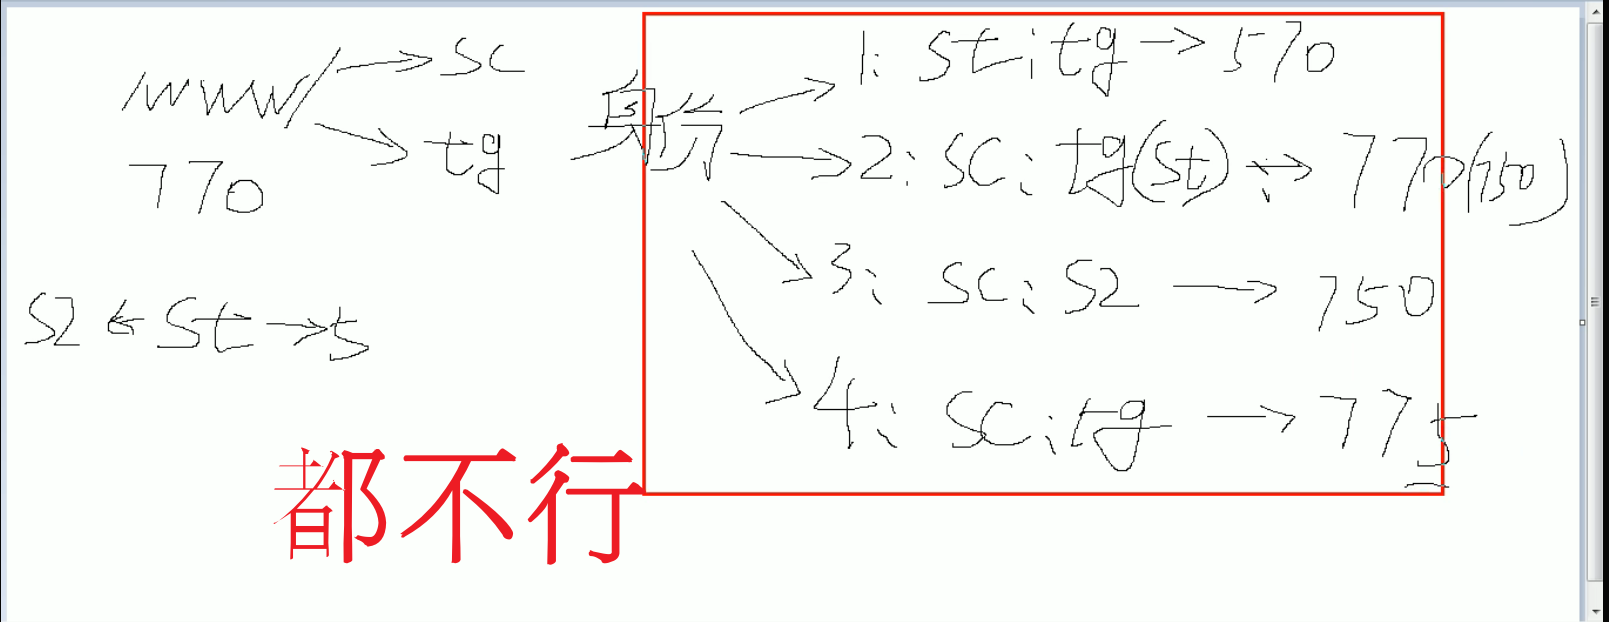 www/ → sc
→ tg
770
s2 ← st → 5
身份
1: st: tg → 570
2: sc: tg(st) → 770(750)
3: sc: s2 → 750
4: sc: tg → 775
都不行